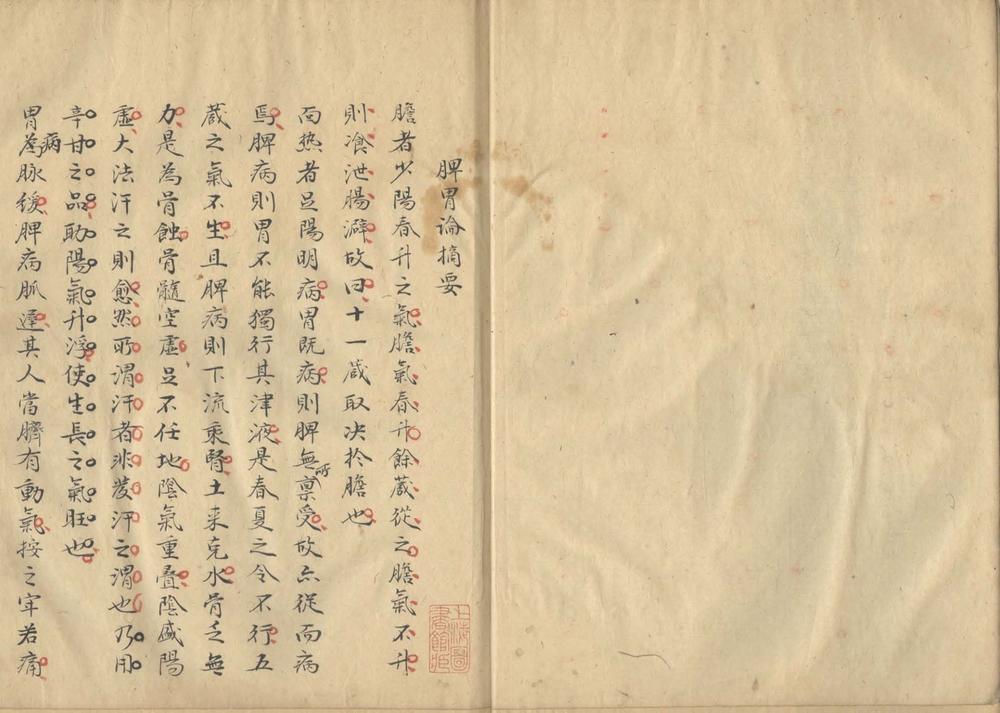 脾胃論摘要
膽者少陽春升之氣膽氣春升餘蔵從之膽氣不升
則飧泄腸澼故曰十一蔵取决於膽也
而热者足陽明病胃既病則脾無所禀受故亦從而病
焉脾病則胃不能獨行其津液是春夏之令不行五
蔵之氣不生且脾病則下流乘腎土来克水骨乏無
力是為骨蝕骨髓空虛足不任地陰氣重疊陰盛陽
虛大法汗之則愈然所谓汗者非發汗之谓也乃用
辛甘之品助陽氣升浮使生長之氣旺也
胃病為脉緩脾病脈遲其人當臍有動氣按之牢若痛
上海圖書館藏